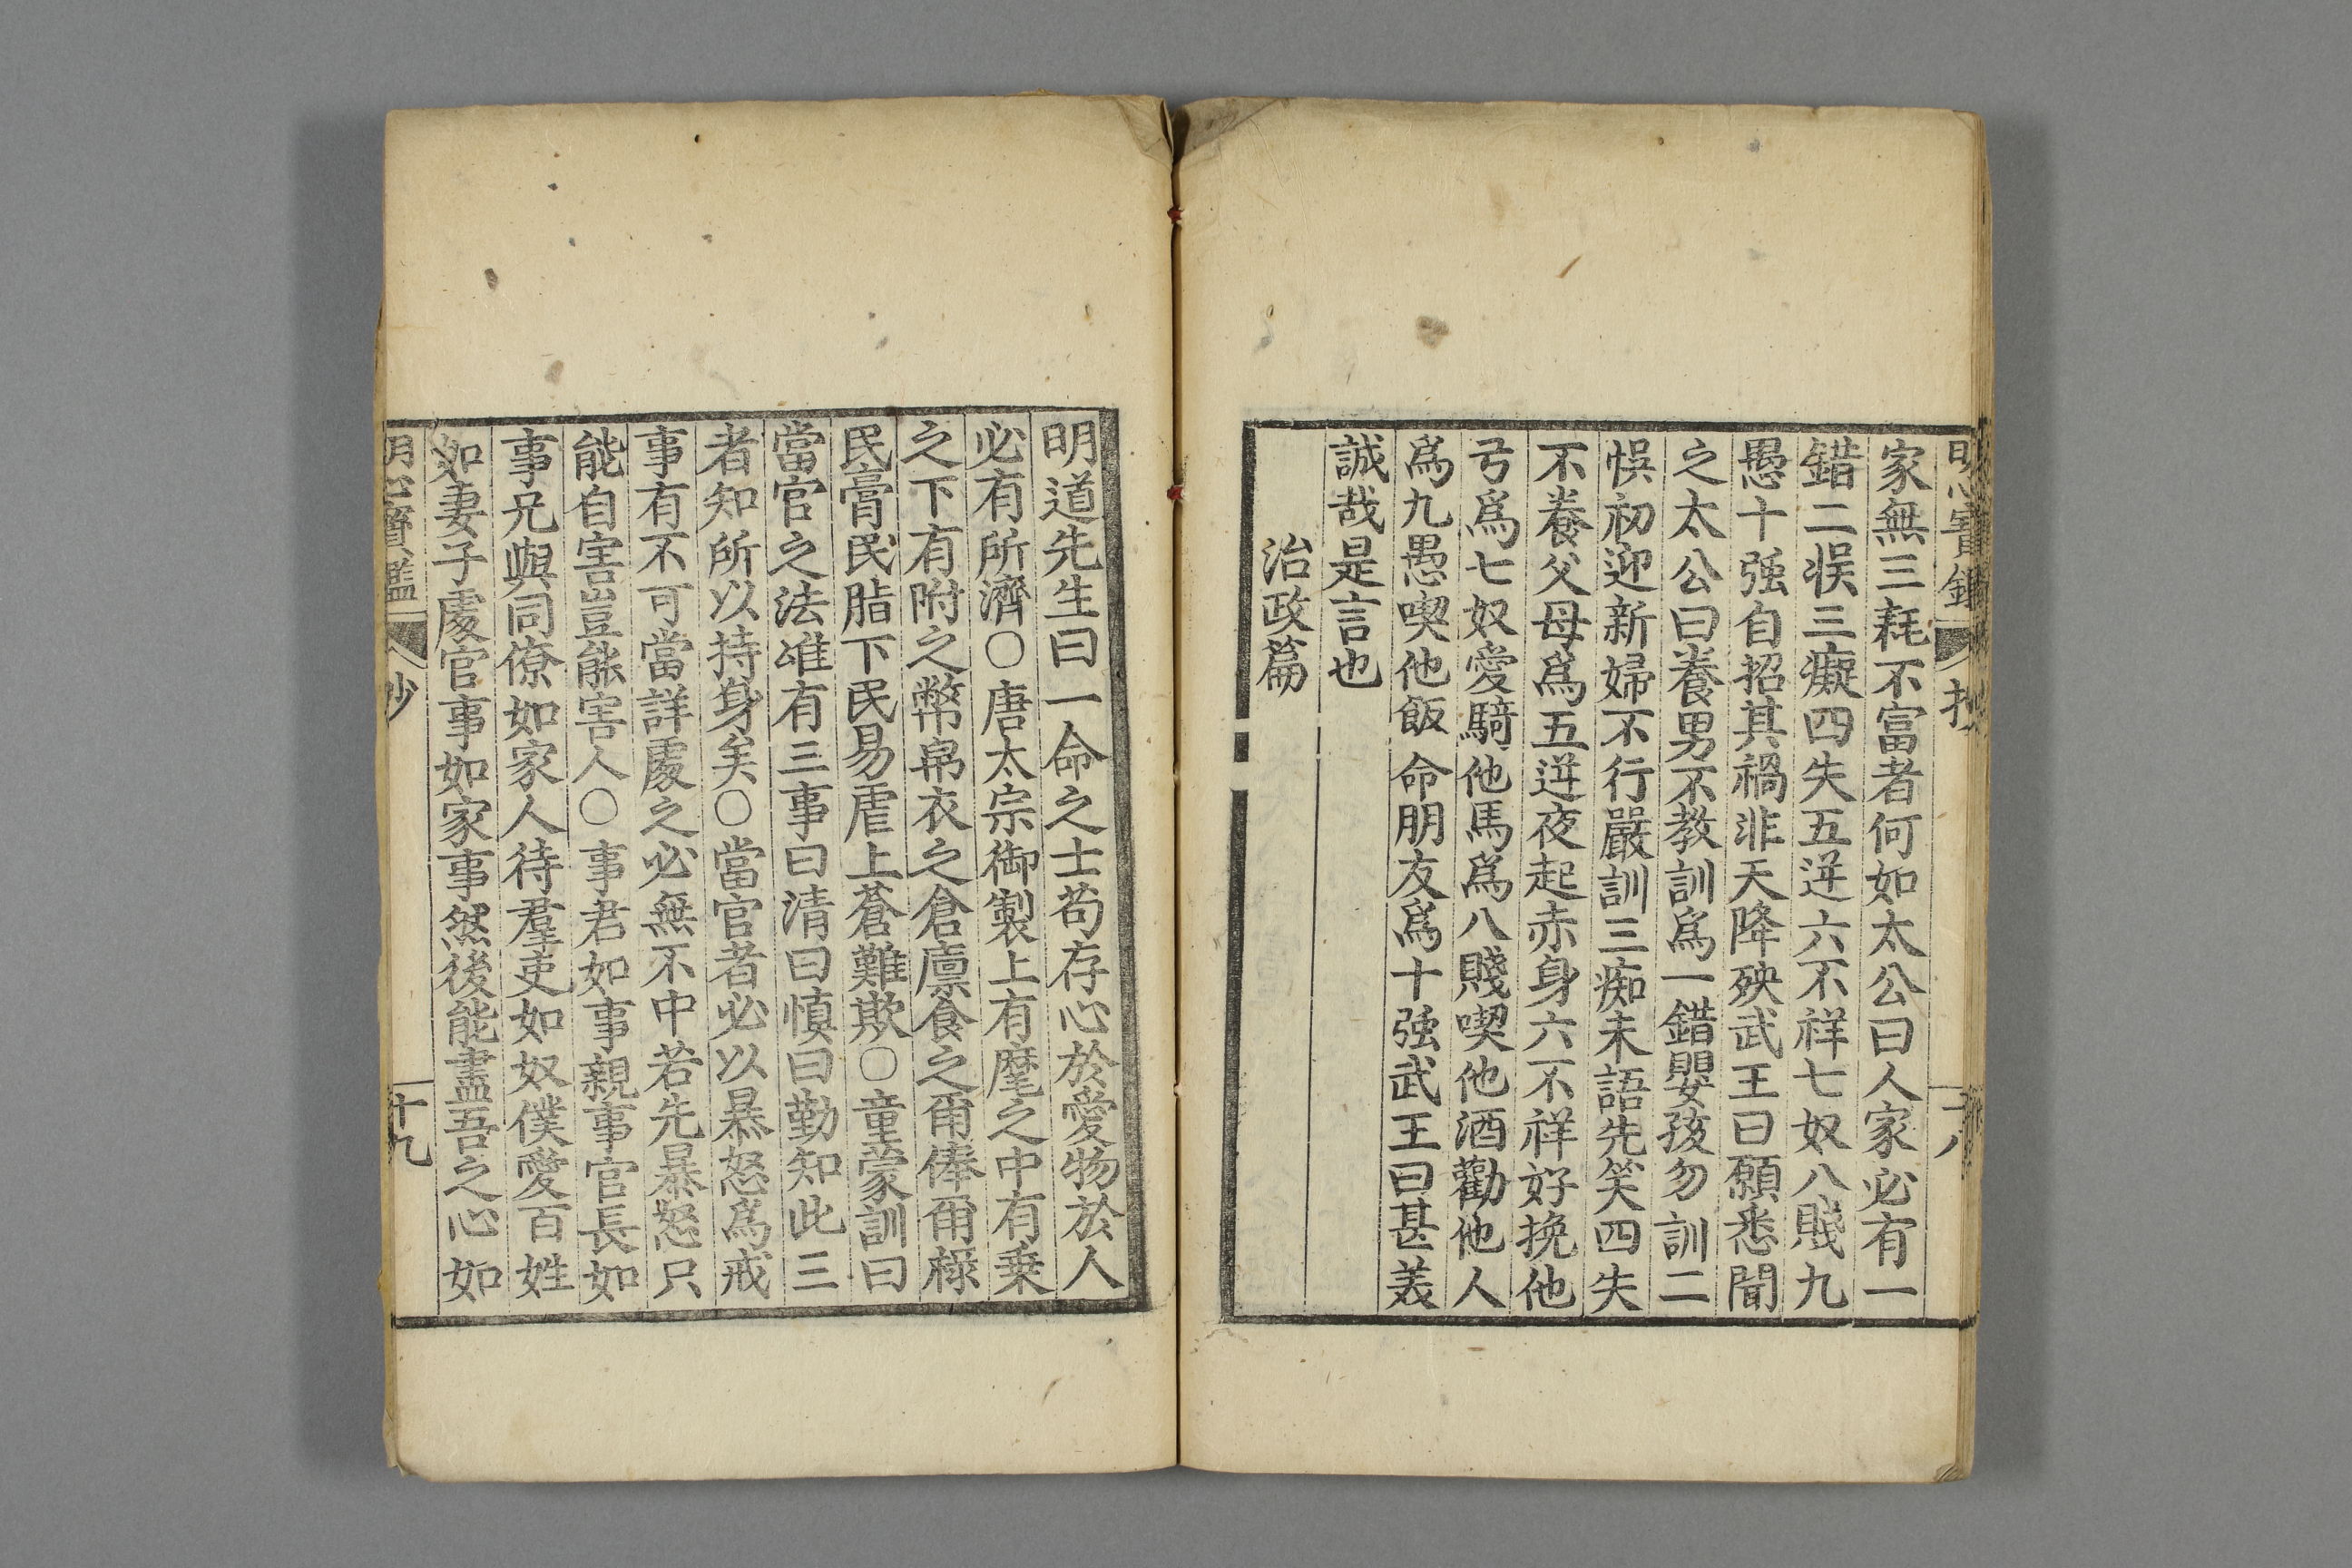 明心寶鑑 抄 十八
家無三耗不富者何如太公曰人家必有一
錯二悞三癡四失五逆六不祥七奴八賤九
愚十强自招其禍非天降殃武王曰願悉聞
之太公曰養男不教訓爲一錯嬰孩勿訓二
悞初迎新婦不行嚴訓三痴未語先笑四失
不養父母爲五逆夜起赤身六不祥好挽他
弓爲七奴愛騎他馬爲八賤喫他酒勸他人
爲九愚喫他飯命朋友爲十强武王曰甚美
誠哉是言也
治政篇
明道先生曰一命之士苟存心於愛物於人
必有所濟○唐太宗御製上有麾之中有乗
之下有附之幣帛衣之倉廪食之甭俸甭祿
民膏民脂下民易虐上蒼難欺○童蒙訓曰
當官之法唯有三事曰清曰慎曰勤知此三
者知所以持身矣○當官者必以暴怒爲戒
事有不可當詳處之必無不中若先暴怒只
能自害豈能害人○事君如事親事官長如
事兄與同僚如家人待羣吏如奴僕愛百姓
如妻子處官事如家事然後能盡吾之心如
明心寶鑑 抄 十九